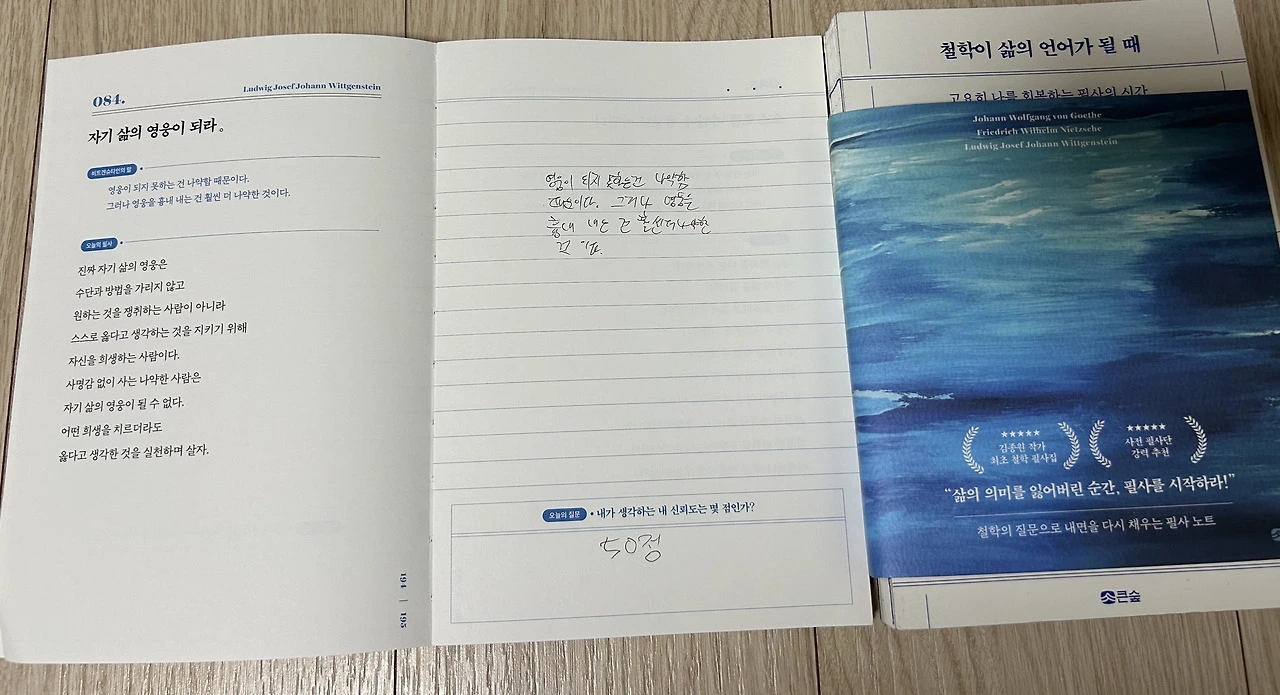 084.
Ludwig Josef Johann Wittgenstein
자기 삶의 영웅이 되라.
비트겐슈타인의 말
영웅이 되지 못하는 건 나약함 때문이다.
그러나 영웅을 흉내 내는 건 훨씬 더 나약한 것이다.
오늘의 필사
진짜 자기 삶의 영웅은
수단과 방법을 가리지 않고
원하는 것을 쟁취하는 사람이 아니라
스스로 옳다고 생각하는 것을 지키기 위해
자신을 희생하는 사람이다.
사명감 없이 사는 나약한 사람은
자기 삶의 영웅이 될 수 없다.
어떤 희생을 치르더라도
옳다고 생각한 것을 실천하며 살자.
194 | 195
영웅이 되지 못하는건 나약함
때문이다. 그러나 영웅을
흉내 내는 건 훨씬더나약한
것
오늘의 질문 • 내가 생각하는 내 신뢰도는 몇 점인가?
50점
철학이 삶의 언어가 될 때
고요히 나를 회복하는 필사의 시간
Johann Wolfgang von Goethe
Friedrich Wilhelm Nietzsche
Ludwig Josef Johann Wittgenstein
★★★★★
김종원 작가
최초 철학 필사집
★★★★★
사전 필사단
강력 추천
“삶의 의미를 잃어버린 순간, 필사를 시작하라!”
철학의 질문으로 내면을 다시 채우는 필사 노트
큰숲